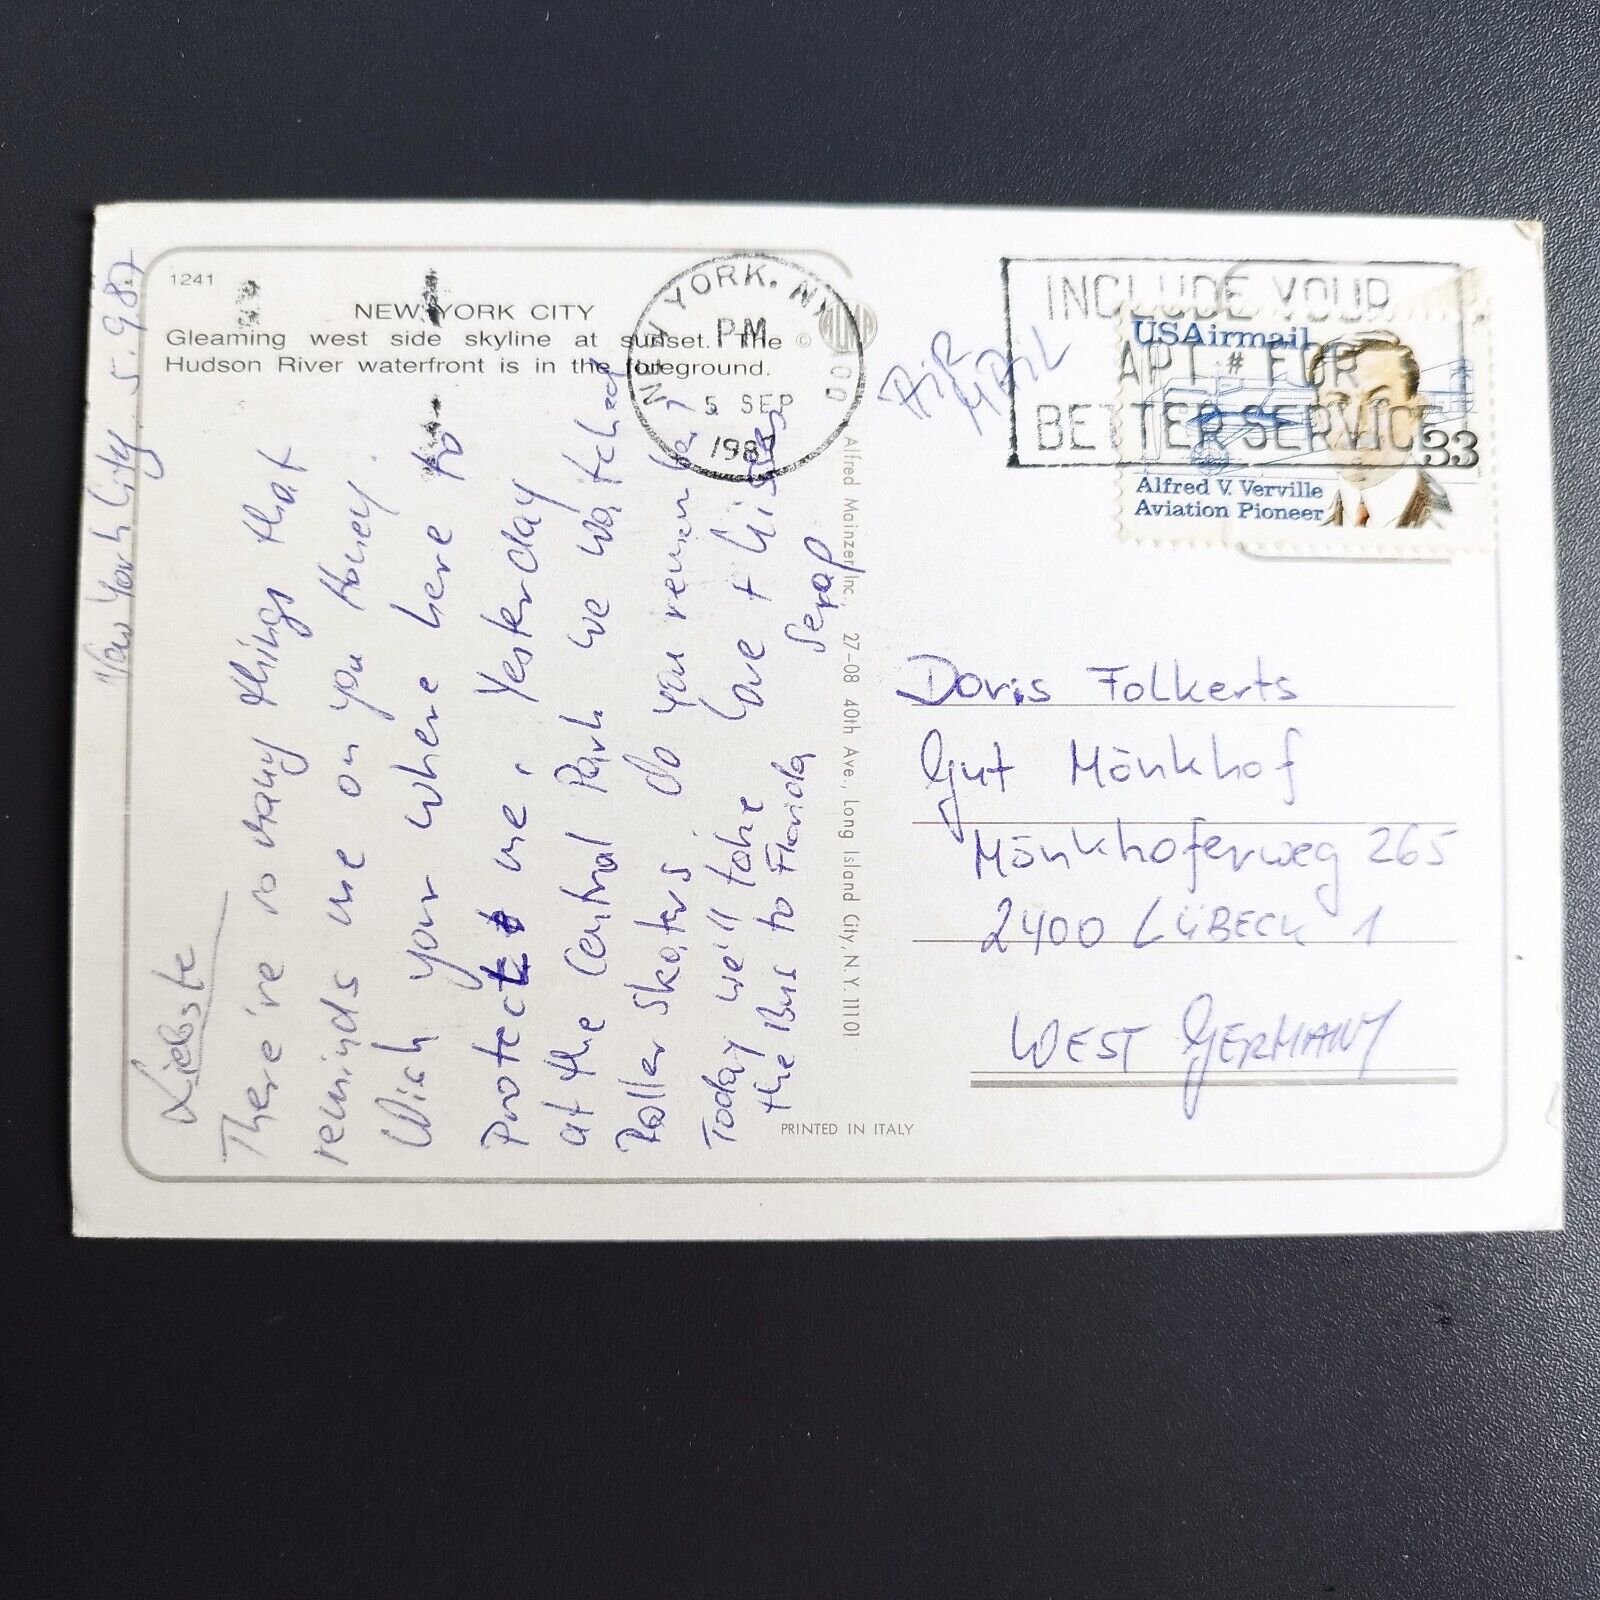 1241
NEW YORK CITY
Gleaming west side skyline at sunset. The
Hudson River waterfront is in the foreground.
New York City 5.9.87
Liebste
There're so many things that
reminds me on you Honey.
Wish your where here to
Protect me. Yesterday
at the Central Park we watched
Roller Skaters. Do you remember?
Today we'll take
the Bus to Florida
Love + Kisses
Serap
©
Alfred Mainzer Inc., 27-08 40th Ave., Long Island City, N.Y. 11101
PRINTED IN ITALY
NEW YORK, NY
100
PM
5 SEP
1987
AIR
MAIL
INCLUDE YOUR
APT # FOR
BETTER SERVICE
USAirmail
33
Alfred V. Verville
Aviation Pioneer
Doris Folkerts
Gut Mönkhof
Mönkhoferweg 265
2400 LÜBECK 1
WEST GERMANY